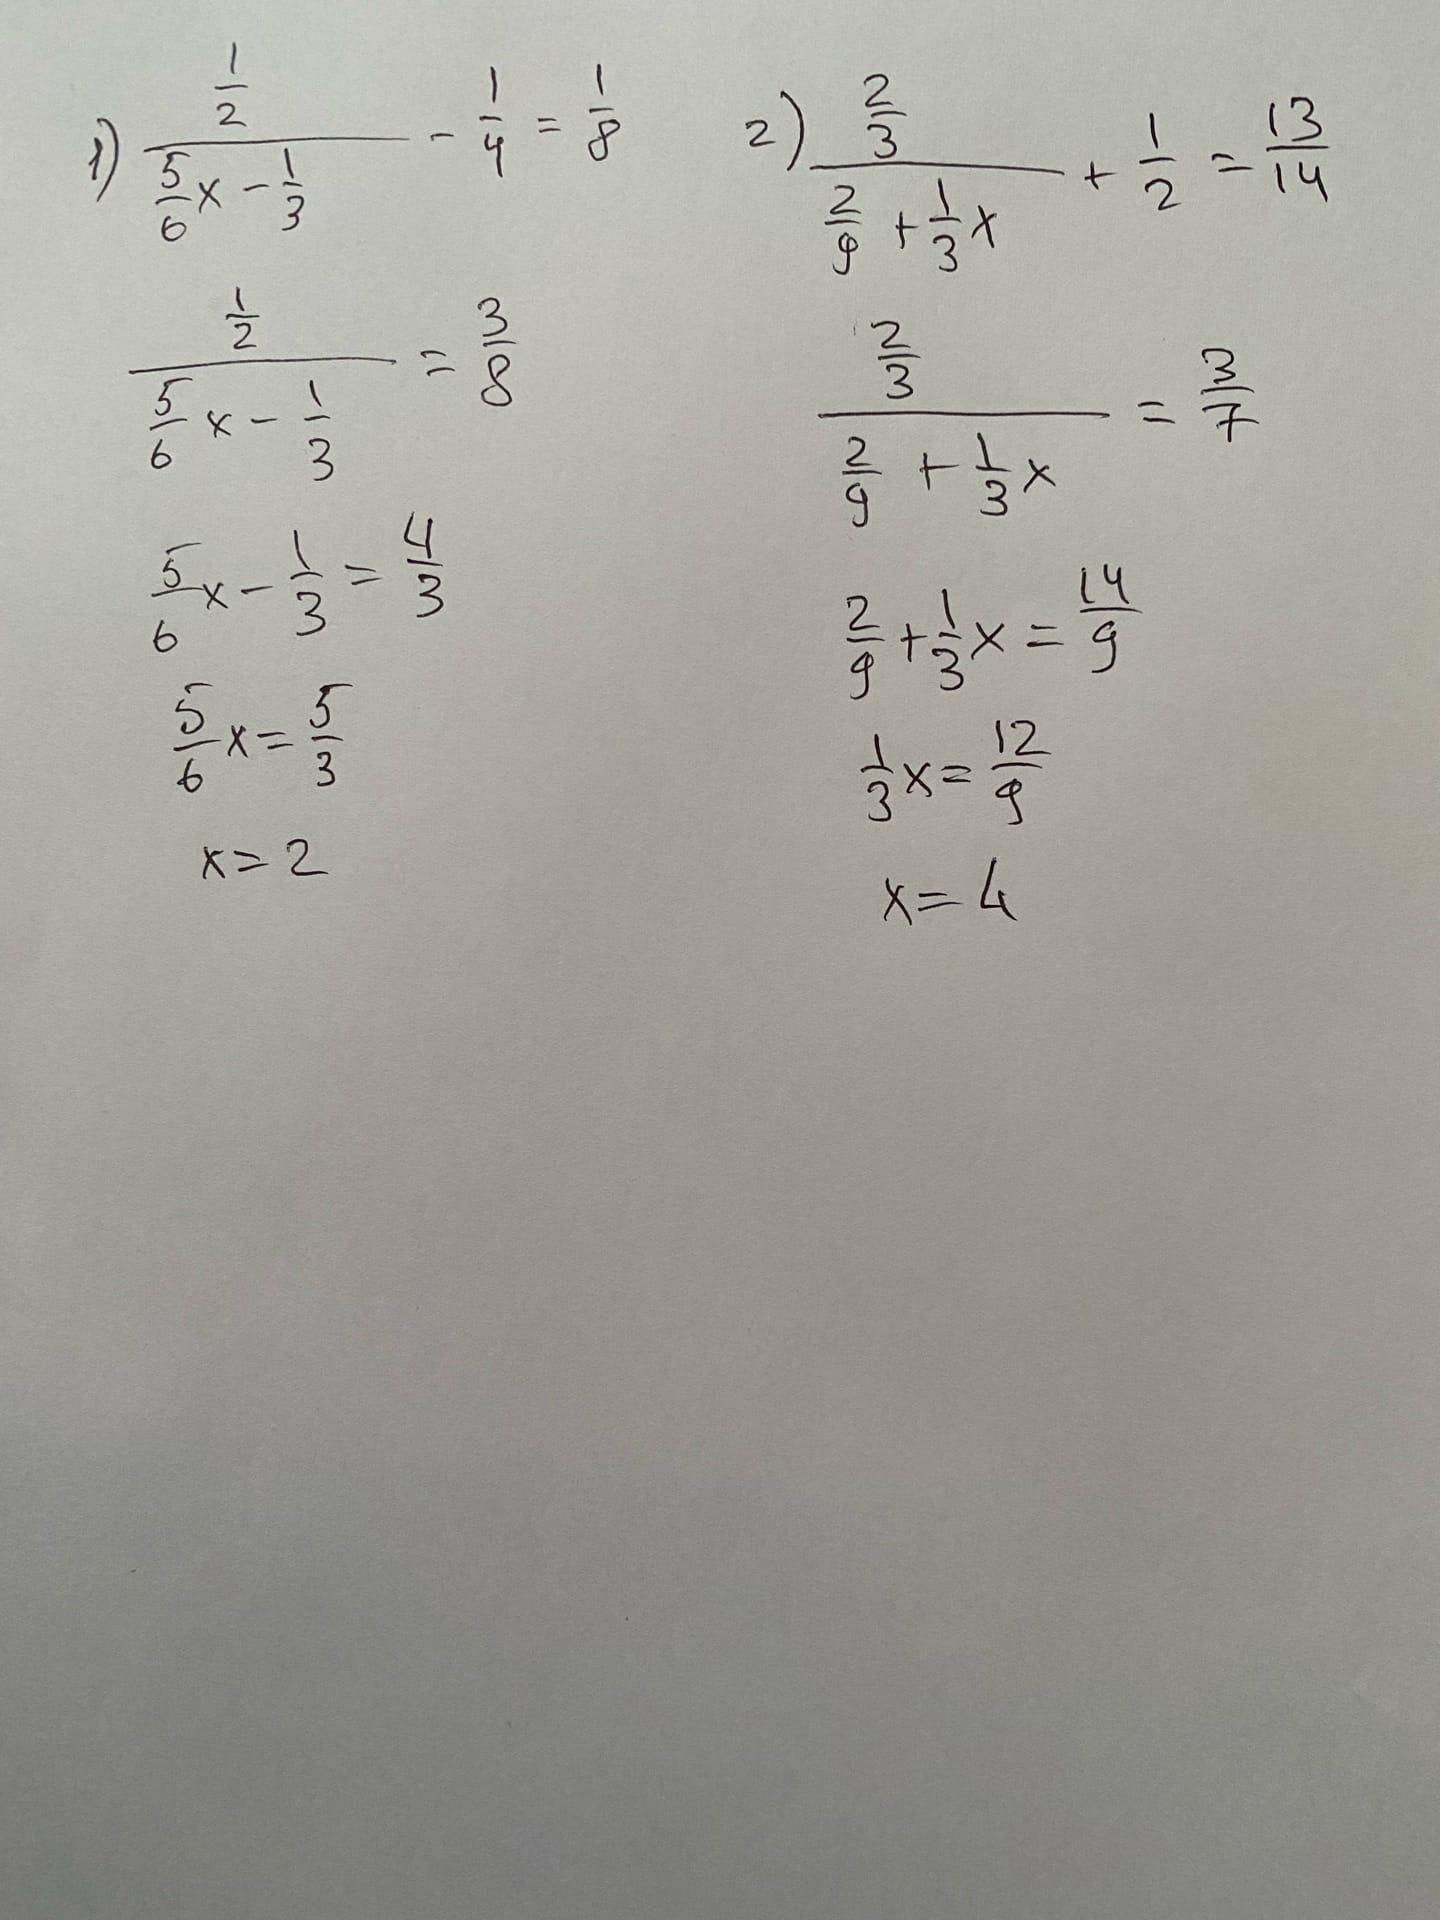 1) (1/2)/(5/6 x - 1/3) - 1/4 = 1/8
(1/2)/(5/6 x - 1/3) = 3/8
5/6 x - 1/3 = 4/3
5/6 x = 5/3
x = 2
2) (2/3)/(2/9 + 1/3 x) + 1/2 = 13/14
(2/3)/(2/9 + 1/3 x) = 3/7
2/9 + 1/3 x = 14/9
1/3 x = 12/9
x = 4